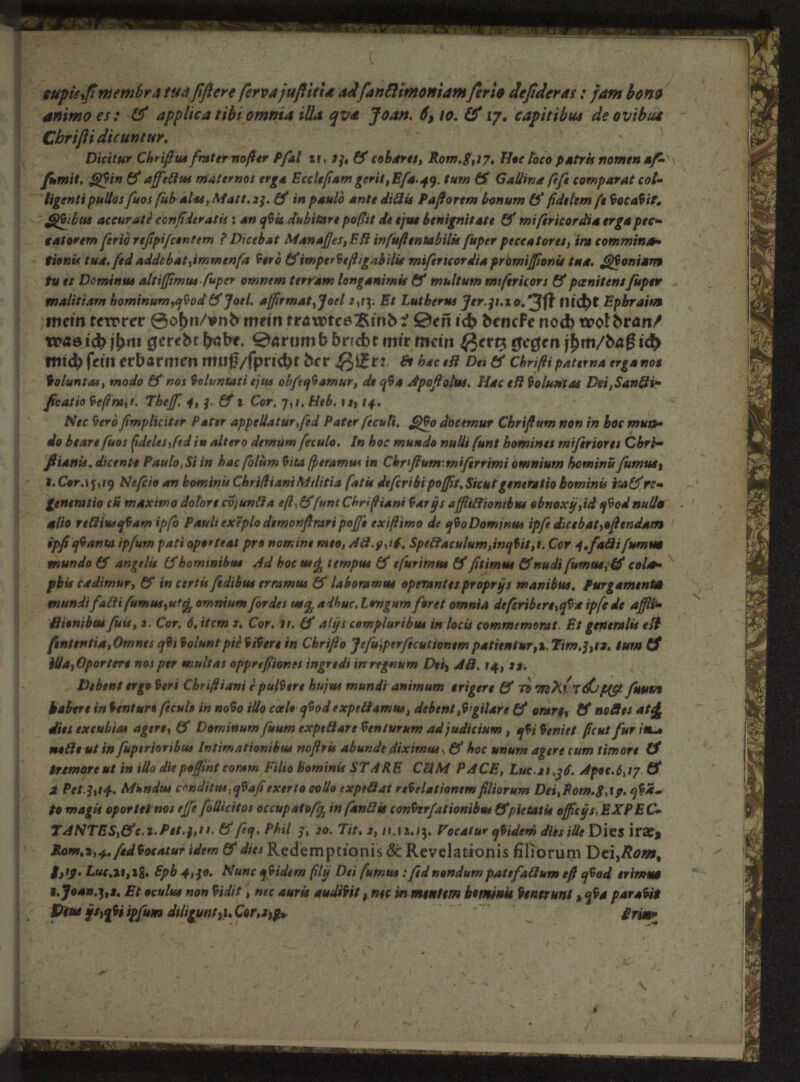 cupis, si membra tua sistere serva justitiæ ad sanctimoniam seriò desideras : jam bono
animo es : & applica tibi omnia illa qvæ Joan. 6, 10. & 17. capitibus de ovibus
Christi dicuntur.
Dicitur Christus frater noster Psal 22, 23, & cohæres, Rom. 8, 17. Hoc loco patris nomen as-
sumit. Qvin & affectus maternos erga Ecclesiam gerit, Esa. 49. tum & Gallinæ sese comparat col-
ligenti pullos suos sub alas, Matt. 23. & in paulò ante dictis Pastorem bonum & fidelem se vocavit.
Qvibus accuratè consideratis : an qvis dubitare possit de ejus benignitate & misericordia erga pec-
catorem seriò resipiscentem ? Dicebat Manasses, Est insustentabilis super peccatores, ira commina-
tionis tuæ. sed addebat, immensa verò & impervestigabilis misericordia promissionis tuæ. Qvoniam
tu es Dominus altissimus super omnem terram longanimis & multum misericors & pœnitens super
malitiam hominum, qvod & Joel. affirmat, Joel 2, 13. Et Lutherus Jer. 31. 20. Ist nicht Ephraim
mein tewrer Sohn/vnd mein trawtes Kind? Den ich dencke noch wol dran/
was ich jhm geredt habe. Darumb bricht mir mein Hertz gegen jhm/daß ich
mich sein erbarmen muß/spricht der HErr. Et hæc est Dei & Christi paterna erga nos
voluntas, modo & nos voluntati ejus obseqvamur, de qva Apostolus. Hæc est voluntas Dei, Sancti-
ficatio vestra, 1. Thess. 4, 3. & 2 Cor. 7, 1. Heb. 12, 14.
Nec verò simpliciter Pater appellatur, sed Pater seculi, Qvo docemur Christum non in hoc mun-
do beare suos fideles, sed in altero demum seculo. In hoc mundo nulli sunt homines miseriores Chri-
stianis. dicente Paulo, Si in hac solùm vita speramus in Christum: miserrimi omnium hominū sumus,
1. Cor. 15, 19 Nescio an hominis Christiani Militia satis describi possit. Sicut generatio hominis ita & re-
generatio cū maximo dolore cōjuncta est, & sunt Christiani variis afflictionibus obnoxij, id qvod nullo
alio rectius qvam ipso Pauli exēplo demonstrari posse existimo de qvo Dominus ipse dicebat, ostendam
ipsi qvanta ipsum pati oporteat pro nomine meo, Act. 9, 16. Spectaculum, inqvit, 1. Cor 4. facti sumus
mundo & angelis & hominibus Ad hoc usq; tempus & esurimus & sitimus & nudi sumus, & cola-
phis cædimur, & in certis sedibus erramus & laboramus operantes proprijs manibus. Purgamenta
mundi facti sumus, ut q; omnium sordes usq; adhuc. Longum foret omnia describere, qvæ ipse de affli-
ctionibus suis, 2. Cor. 6, item 2. Cor. 11. & alijs compluribus in locis commemorat. Et generalis est
sententia, Omnes qvi volunt piè vivere in Christo Jesu, persecutionem patientur, 2. Tim. 3, 12. tum &
illa, Oportere nos per multas oppressiones ingredi in regnum Dei, Act. 14, 22.
Debent ergo veri Christiani è pulvere hujus mundi animum erigere & τὸ πολίτευμα suum
habere in venturo seculo in novo illo cœlo qvod expectamus, debent, vigilare & orare, & noctes atq;
dies excubias agere, & Dominum suum expectare venturum ad judicium, qvi veniet sicut fur in
nocte ut in superioribus Intimationibus nostris abunde diximus, & hoc unum agere cum timore &
tremore ut in illo die possint coram Filio hominis STARE CUM PACE, Luc. 21. 36. Apoc. 6, 17 &
2 Pet. 3, 14. Mundus conditus, qvasi exerto collo expectat revelationem filiorum Dei, Rom. 8, 19. qvā-
to magis oportet nos esse sollicitos occupatosq; in sanctis conversationibus & pietatis officijs, EXPEC-
TANTES, &c. 2. Pet. 3, 11. & seq. Phil 3, 20. Tit. 2, 11. 12. 13. Vocatur qvidem dies ille Dies iræ,
Rom. 2, 4. sed vocatur idem & dies Redemptionis & Revelationis filiorum Dei, Rom,
8, 19. Luc. 21, 28. Eph 4, 30. Nunc qvidem filij Dei sumus : sed nondum patefactum est qvod erimus
1. Joan. 3, 2. Et oculus non vidit, nec auris audivit, nec in mentem hominis venerunt, qvæ paravit
Deus ijs, qvi ipsum diligunt, 1. Cor. 2, 9.
Erim,